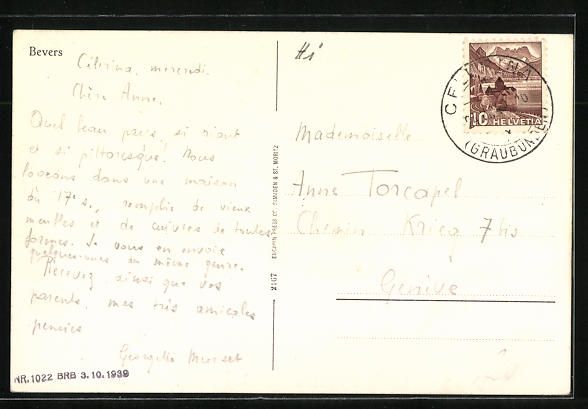 Bevers
Celerina, mercredi
Chère Anne,
Quel beau pays, si riant
et si pittoresque! Nous
logeons dans une maison
du 17e s., remplie de vieux
meubles et de cuivres de toutes
formes. Je vous en envoie
quelques-unes du même genre.
Recevez, ainsi que vos
parents, mes très amicales
pensées
NR. 1022 BRB 3.10.1939
ENGADIN PRESS CO. SAMADEN & ST. MORITZ
2167
10
HELVETIA
(GRAUBÜNDEN)
Mademoiselle
Anne Torcapel
Chemin Krieg 7 bis
Genève